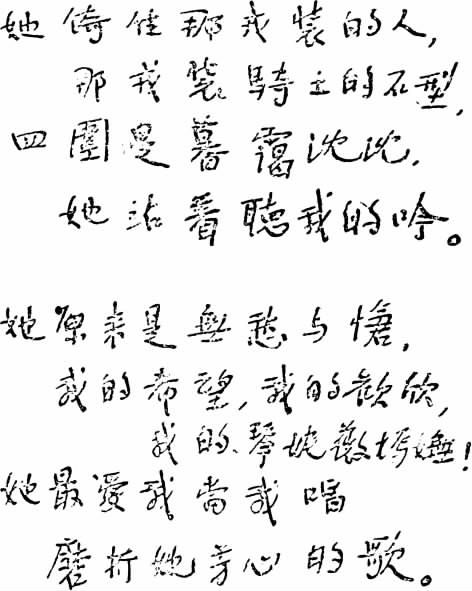 她倚住那戎裝的人,
那戎裝騎士的石型,
四圍是暮靄沈沈,
她站着聽我的吟。
她原來是無愁与
我的希望,我的歡欣,
我的琴薇嫵!
她最愛我當我唱
磨折她芳心的歌。